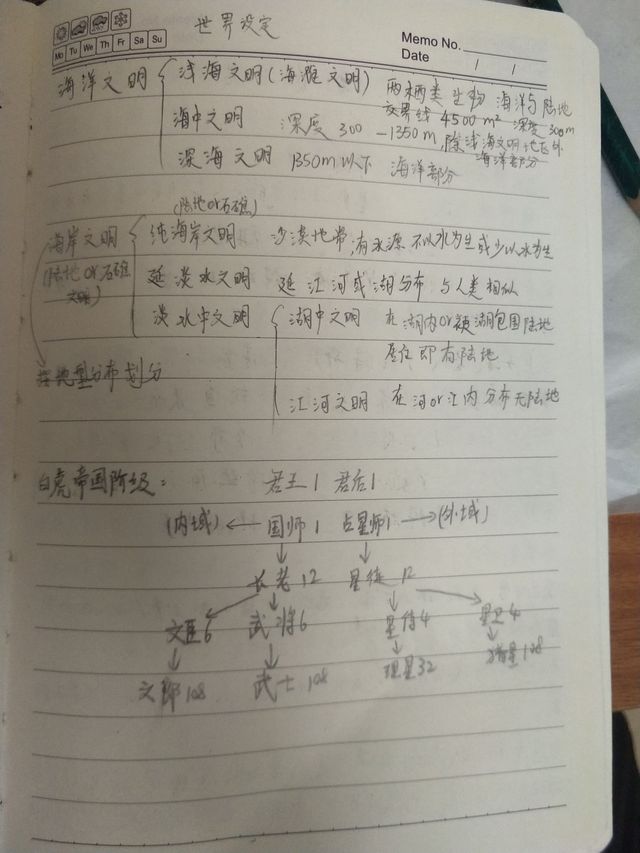 世界设定
Mo Tu We Th Fr Sa Su
Memo No.
Date / /
海洋文明
浅海文明(海滩文明) 两栖类生物 海洋与陆地
交界线 4500m² 深度300m
海中文明 深度 300—1350m 除浅海文明地区外
海洋部分
深海文明 1350m以下 海洋部分
(陆地or石礁)
海岸文明
(陆地or石礁
文明)
纯海岸文明 沙漠地带,有水源 不以水为生或少以水为生
延淡水文明 延江河或湖分布 与人类相似
淡水中文明
湖中文明 在湖内or被湖包围陆地
居住即有陆地
江河文明 在河or江内分布无陆地
按地型分布划分
白虎帝国阶级: 君王1 君后1
(内域) 国师1 占星师1 (外域)
长老12 星徒12
文臣6 武将6 星侍4 星卫4
文郎108 武士108 理星32 108